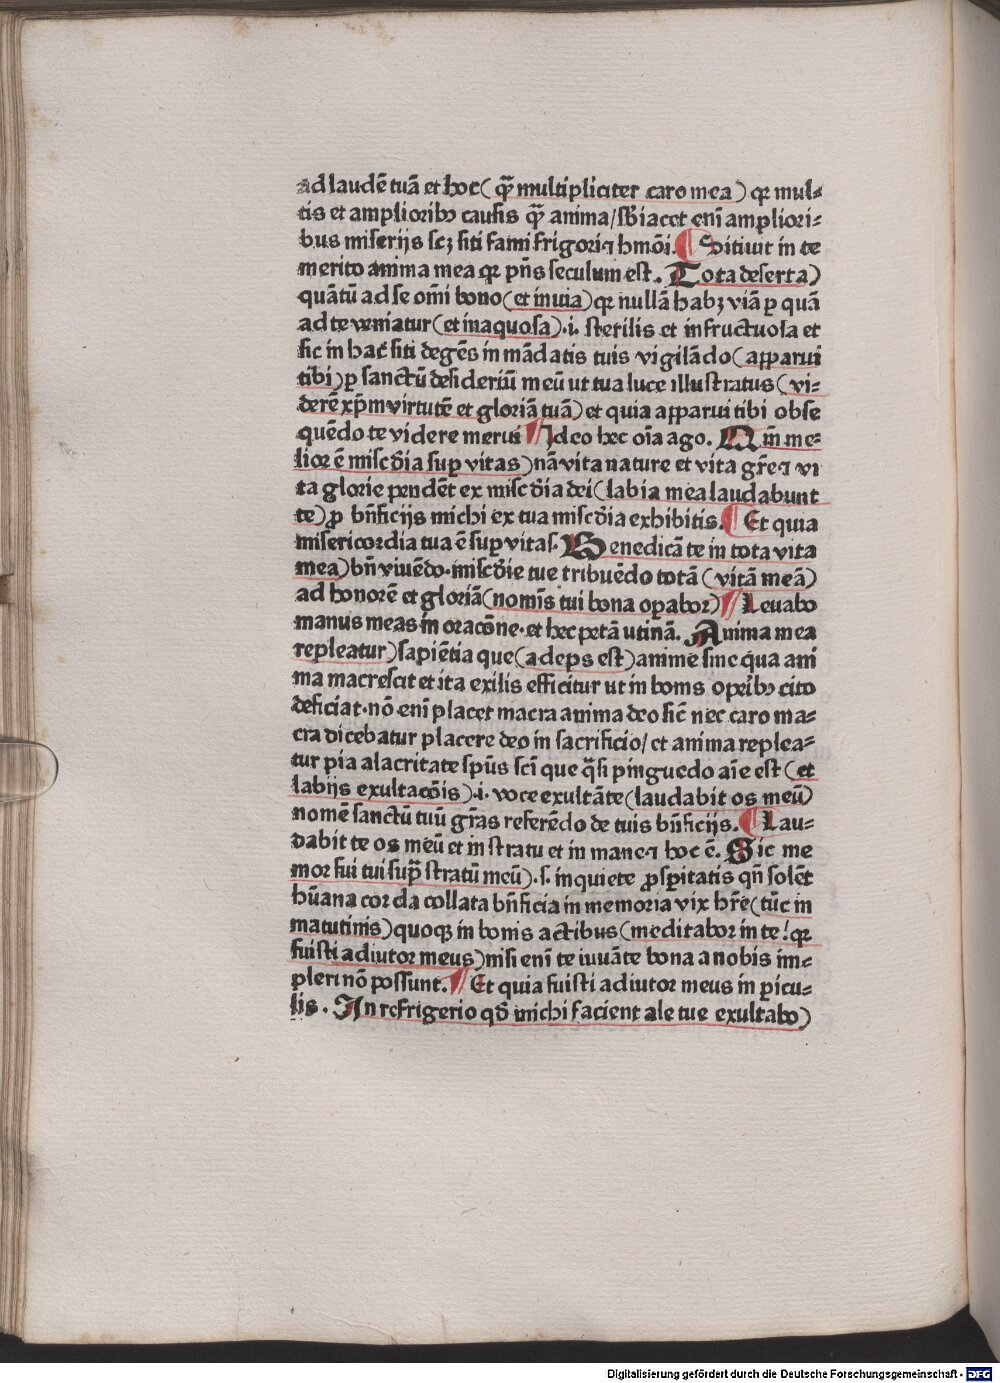 ad laudē tuā et hoc( qƷ̄ multipliciter caro mea ) qꝛ mul⸗
tis et amplioribꝰ causis qƷ̄ anima/sb̄iacet eni ampliori⸗
bus miserijs scꝫ siti fami frigori ⁊ hmōi. ¶ Sitiuit in te
merito anima mea qꝛ pn̄s seculum est. Tota deserta)
quātū ad se omi bono(et inuia) qꝛ nullā habꝫ viā ꝑ quā
ad te veniatur(et inaquosa).i. sterilis et infructuosa et
sic in hac siti degēs in mādatis tuis vigilādo(apparui
tibi) ꝑ sanctū desideriū meū ut tua luce illustratus(vi⸗
derē xp̄m virtutē et gloriā tuā) et quia apparui tibi obse
quēdo te videre merui ¶ Ideo hec oīa ago. Qm̄ me⸗
lior ē misc̄dia suꝑ vitas) nā vita nature et vita gr̄e ⁊ vi
ta glorie pendēt ex misc̄dia dei(labia mea laudabunt
te) ꝓ bn̄ficijs michi ex tua misc̄dia exhibitis. ¶ Et quia
misericordia tua ē suꝑ vitas. Benedicā te in tota vita
mea) bn̄ viuēdo.misc̄die tue tribuēdo totā (vitā meā)
ad honorē et gloriā(nomīs tui bona oꝑabor) ¶ Leuabo
manus meas in oracōne.et hec petā utinā. Anima mea
repleatur)sapiētia que(adeps est)anime sine qua ani
ma macrescit et ita exilis efficitur ut in bonis oꝑibꝰ cito
deficiat.nō eni placet macra anima deo sic̄ nec caro ma⸗
cra dicebatur placere deo in sacrificio/ et anima replea⸗
tur pia alacritate spūs sci que q̄si pinguedo aīe est (et
labijs exultacōis).i. voce exultāte(laudabit os meū)
nomē sanctū tuū gr̄as referēdo de tuis bn̄ficijs. ¶ Lau⸗
dabit te os meū et in stratu et in mane ⁊ hoc ē. Sic me
mor fui tui suꝑ stratū meū).s. in quiete ꝓsꝑitatis qn̄ solēt
hūana corda collata bn̄ficia in memoria vix hr̄e(tūc in
matutinis)quoqꝫ in bonis actibus(meditabor in te!qꝛ
fuisti adiutor meus)nisi eni te iuuāte bona a nobis im⸗
pleri nō possunt. ¶ Et quia fuisti adiutor meus in ꝑicu⸗
lis. In refrigerio qd̄ michi facient ale tue exultabo)
Digitalisierung gefördert durch die Deutsche Forschungsgemeinschaft - DFG